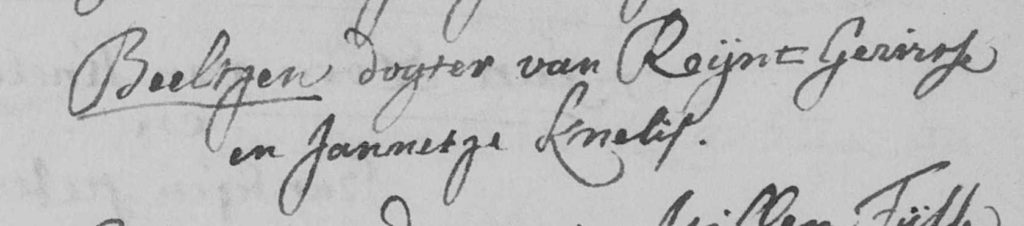 Beeltgen dogter van Reijnt Gerritse
en Jannetge Knelis.
Willem